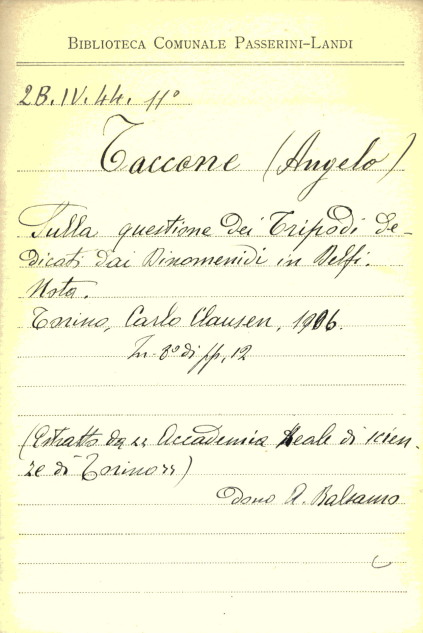 BIBLIOTECA COMUNALE PASSERINI-LANDI
2B.IV.44. 11°
Taccone (Angelo)
Sulla questione dei Tripodi de-
dicati dai Dinomenidi in Delfi.
Nota.
Torino, Carlo Clausen, 1906.
In-8° di pp, 12
(Estratto da "Accademia Reale di scien-
ze di Torino")
dono A. Balsamo